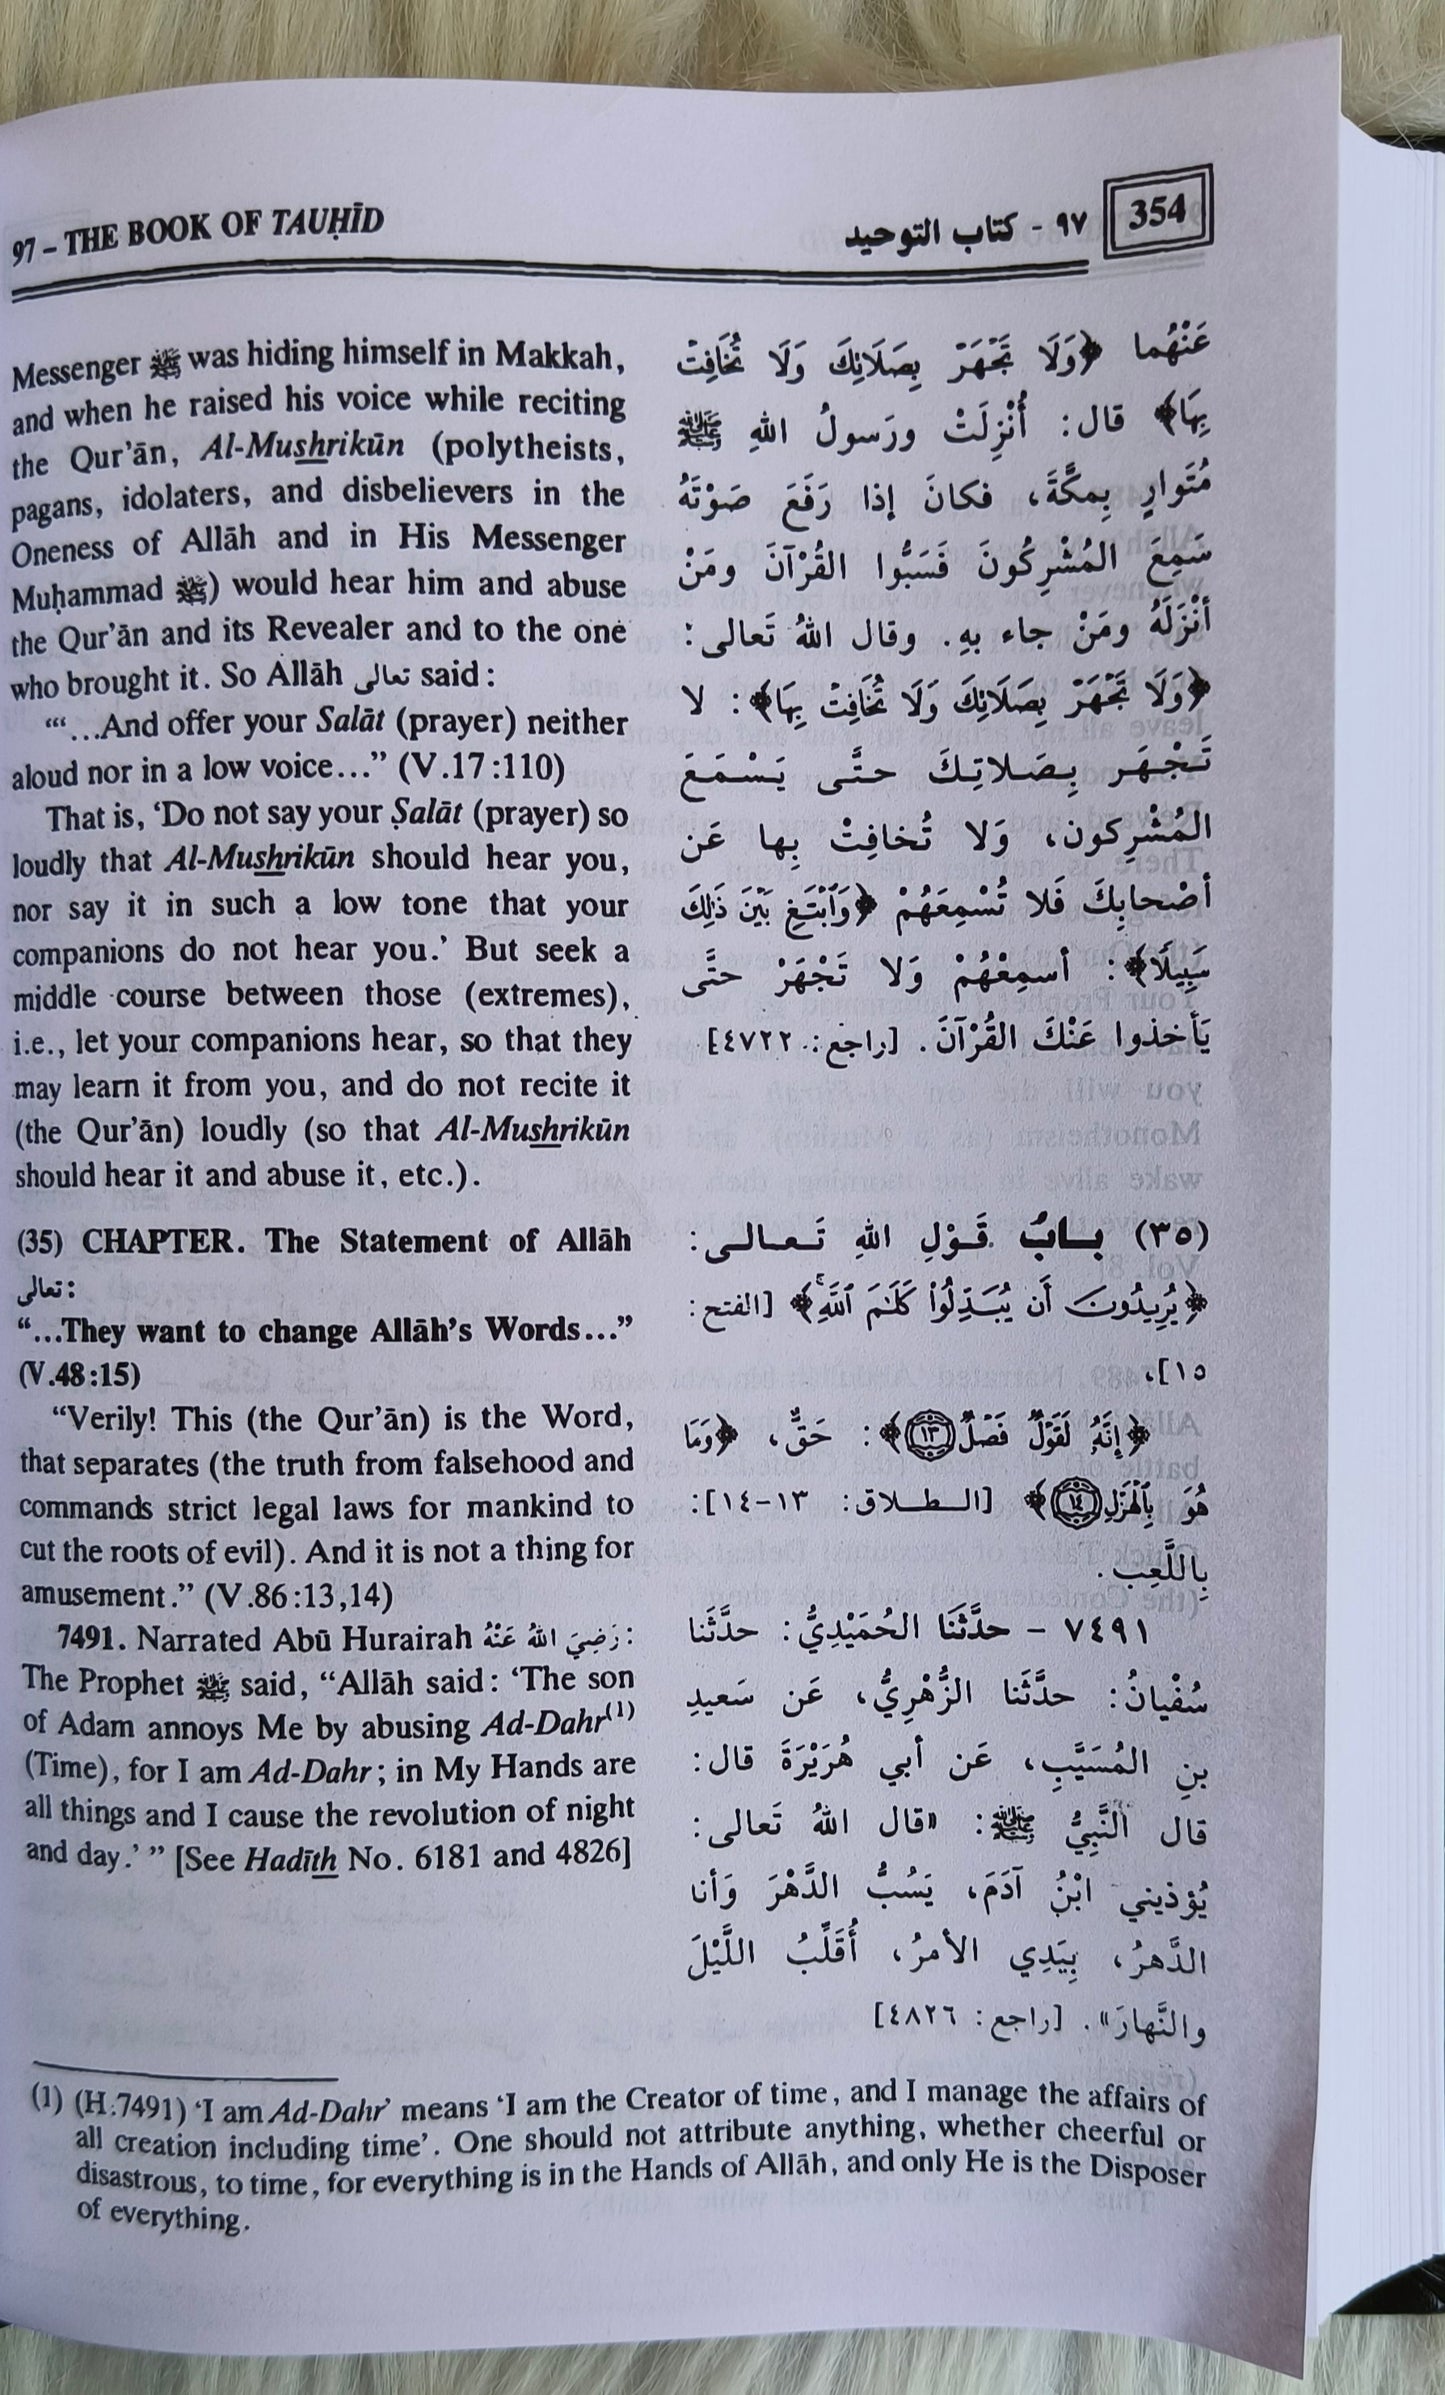 97 – THE BOOK OF TAUḤĪD
٩٧ - كتاب التوحيد
354
Messenger ﷺ was hiding himself in Makkah,
and when he raised his voice while reciting
the Qur’ān, Al-Mushrikūn (polytheists,
pagans, idolaters, and disbelievers in the
Oneness of Allāh and in His Messenger
Muḥammad ﷺ) would hear him and abuse
the Qur’ān and its Revealer and to the one
who brought it. So Allāh تعالى said:
“‘…And offer your Salāt (prayer) neither
aloud nor in a low voice…” (V.17:110)
That is, ‘Do not say your Ṣalāt (prayer) so
loudly that Al-Mushrikūn should hear you,
nor say it in such a low tone that your
companions do not hear you.’ But seek a
middle course between those (extremes),
i.e., let your companions hear, so that they
may learn it from you, and do not recite it
(the Qur’ān) loudly (so that Al-Mushrikūn
should hear it and abuse it, etc.).
(35) CHAPTER. The Statement of Allāh
تعالى:
“…They want to change Allāh’s Words…”
(V.48:15)
“Verily! This (the Qur’ān) is the Word,
that separates (the truth from falsehood and
commands strict legal laws for mankind to
cut the roots of evil). And it is not a thing for
amusement.” (V.86:13,14)
7491. Narrated Abū Hurairah رَضِيَ اللهُ عَنْهُ:
The Prophet ﷺ said, “Allāh said: ‘The son
of Adam annoys Me by abusing Ad-Dahr(1)
(Time), for I am Ad-Dahr; in My Hands are
all things and I cause the revolution of night
and day.’ ” [See Hadīth No. 6181 and 4826]
عَنْهُما ﴿وَلَا تَجْهَرْ بِصَلَاتِكَ وَلَا تُخَافِتْ
بِهَا﴾ قال: أُنْزِلَتْ ورَسولُ اللهِ ﷺ
مُتَوارٍ بِمكَّةَ، فكانَ إذا رَفَعَ صَوْتَهُ
سَمِعَ المُشْرِكُونَ فَسَبُّوا القُرْآنَ ومَنْ
أنْزَلَهُ ومَنْ جاء بهِ. وقال اللهُ تَعالى:
﴿وَلَا تَجْهَرْ بِصَلَاتِكَ وَلَا تُخَافِتْ بِهَا﴾: لا
تَجْهَر بِصَلاتِكَ حتَّى يَسْمَعَ
المُشْرِكون، وَلا تُخافِتْ بِها عَن
أصْحابِكَ فَلا تُسْمِعَهُمْ ﴿وَٱبْتَغِ بَيْنَ ذَٰلِكَ
سَبِيلًا﴾: أسمِعْهُمْ وَلا تَجْهَرْ حتَّى
يَأخذوا عَنْكَ القُرْآنَ. [راجع: ٤٧٢٢]
(٣٥) بابُ قَوْلِ اللهِ تَعالى:
﴿يُرِيدُونَ أَن يُبَدِّلُواْ كَلَٰمَ ٱللَّهِۚ﴾ [الفتح:
١٥]،
﴿إِنَّهُۥ لَقَوْلٌ فَصْلٌ ١٣﴾: حَقٌّ، ﴿وَمَا
هُوَ بِٱلْهَزْلِ ١٤﴾ [الطلاق: ١٣-١٤]:
بِاللَّعِب.
٧٤٩١ - حدَّثَنَا الحُمَيْدِيُّ: حدَّثَنا
سُفْيانُ: حدَّثَنا الزُّهْرِيُّ، عَن سَعيدِ
بنِ المُسَيَّبِ، عَن أبي هُرَيْرَةَ قال:
قال النَّبِيُّ ﷺ: «قال اللهُ تَعالى:
يُؤذيني ابْنُ آدَمَ، يَسُبُّ الدَّهْرَ وَأنا
الدَّهرُ، بِيَدِي الأمرُ، أُقَلِّبُ اللَّيْلَ
والنَّهارَ». [راجع: ٤٨٢٦]
(1) (H.7491) ‘I am Ad-Dahr’ means ‘I am the Creator of time, and I manage the affairs of
all creation including time’. One should not attribute anything, whether cheerful or
disastrous, to time, for everything is in the Hands of Allāh, and only He is the Disposer
of everything.